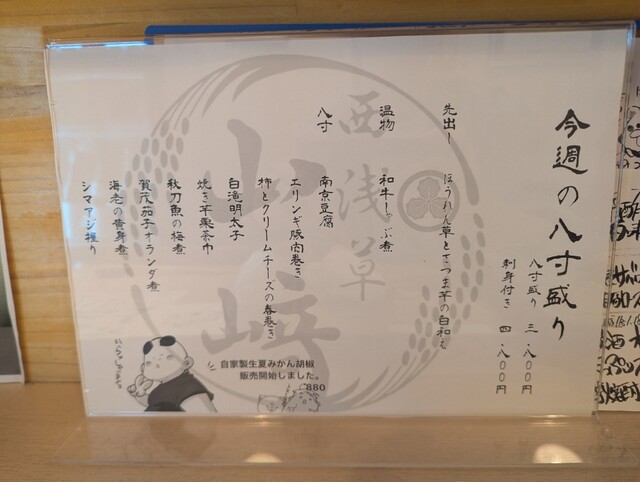 今週の八寸盛り
八寸盛り 三・八〇〇円
刺身付き 四・八〇〇円
先出し ほうれん草とさつま芋の白和え
温物 和牛しゃぶ煮
八寸
南京豆腐
エリンギ豚肉巻き
柿とクリームチーズの春巻き
白滝明太子
焼き芋栗茶巾
秋刀魚の梅煮
賀茂茄子オランダ煮
海老の黄身煮
シマアジ握り
西浅草
山﨑
いらっしゃいませ
自家製生夏みかん胡椒
販売開始しました。
880